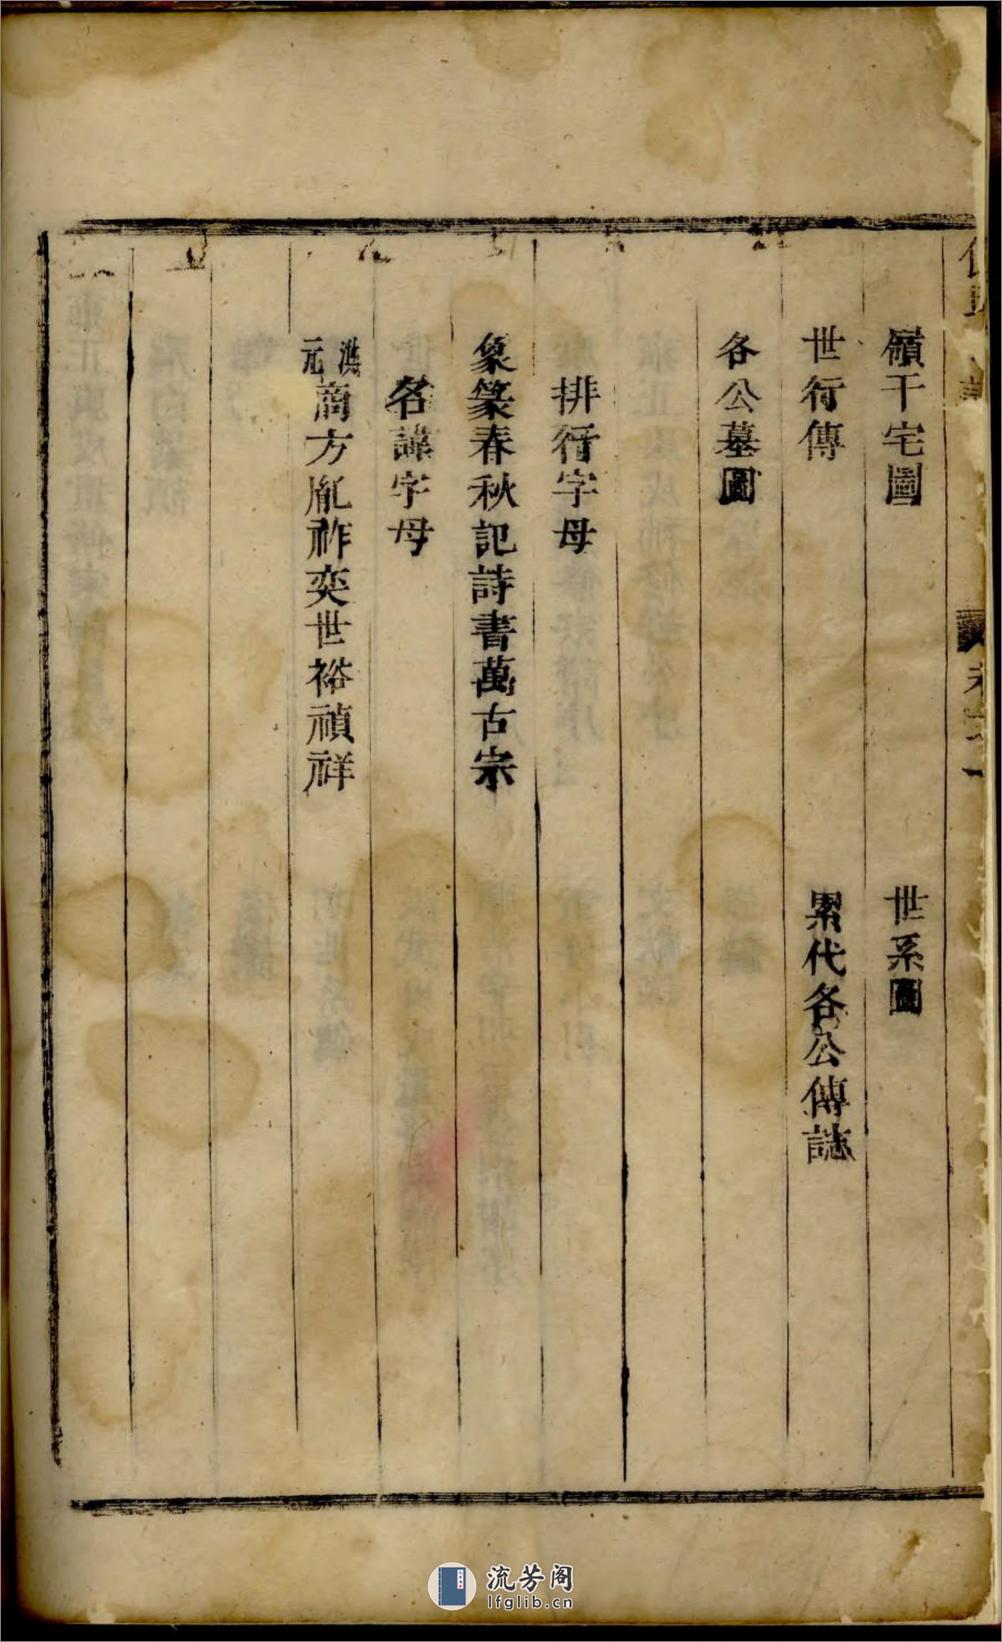 嶺干宅圖　世系圖
世行傳　累代各公傳誌
各公墓圖
排行字母
象篆春秋記詩書萬古宗
名諱字母
淇元商方胤祚奕世裕禎祥
流芳阁
lfglib.cn